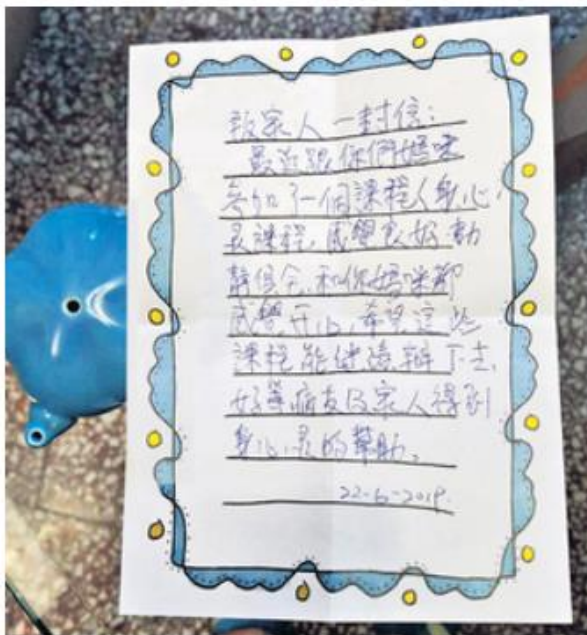 致家人一封信：
最近跟你們媽咪
參加了一個課程人身心
灵課程，感覺良好動
靜俱全，和你媽咪都
感覺开心，希望這些
課程能继續辦下去，
好等病友及家人得到
身心灵的幫助。
22-6-2019.